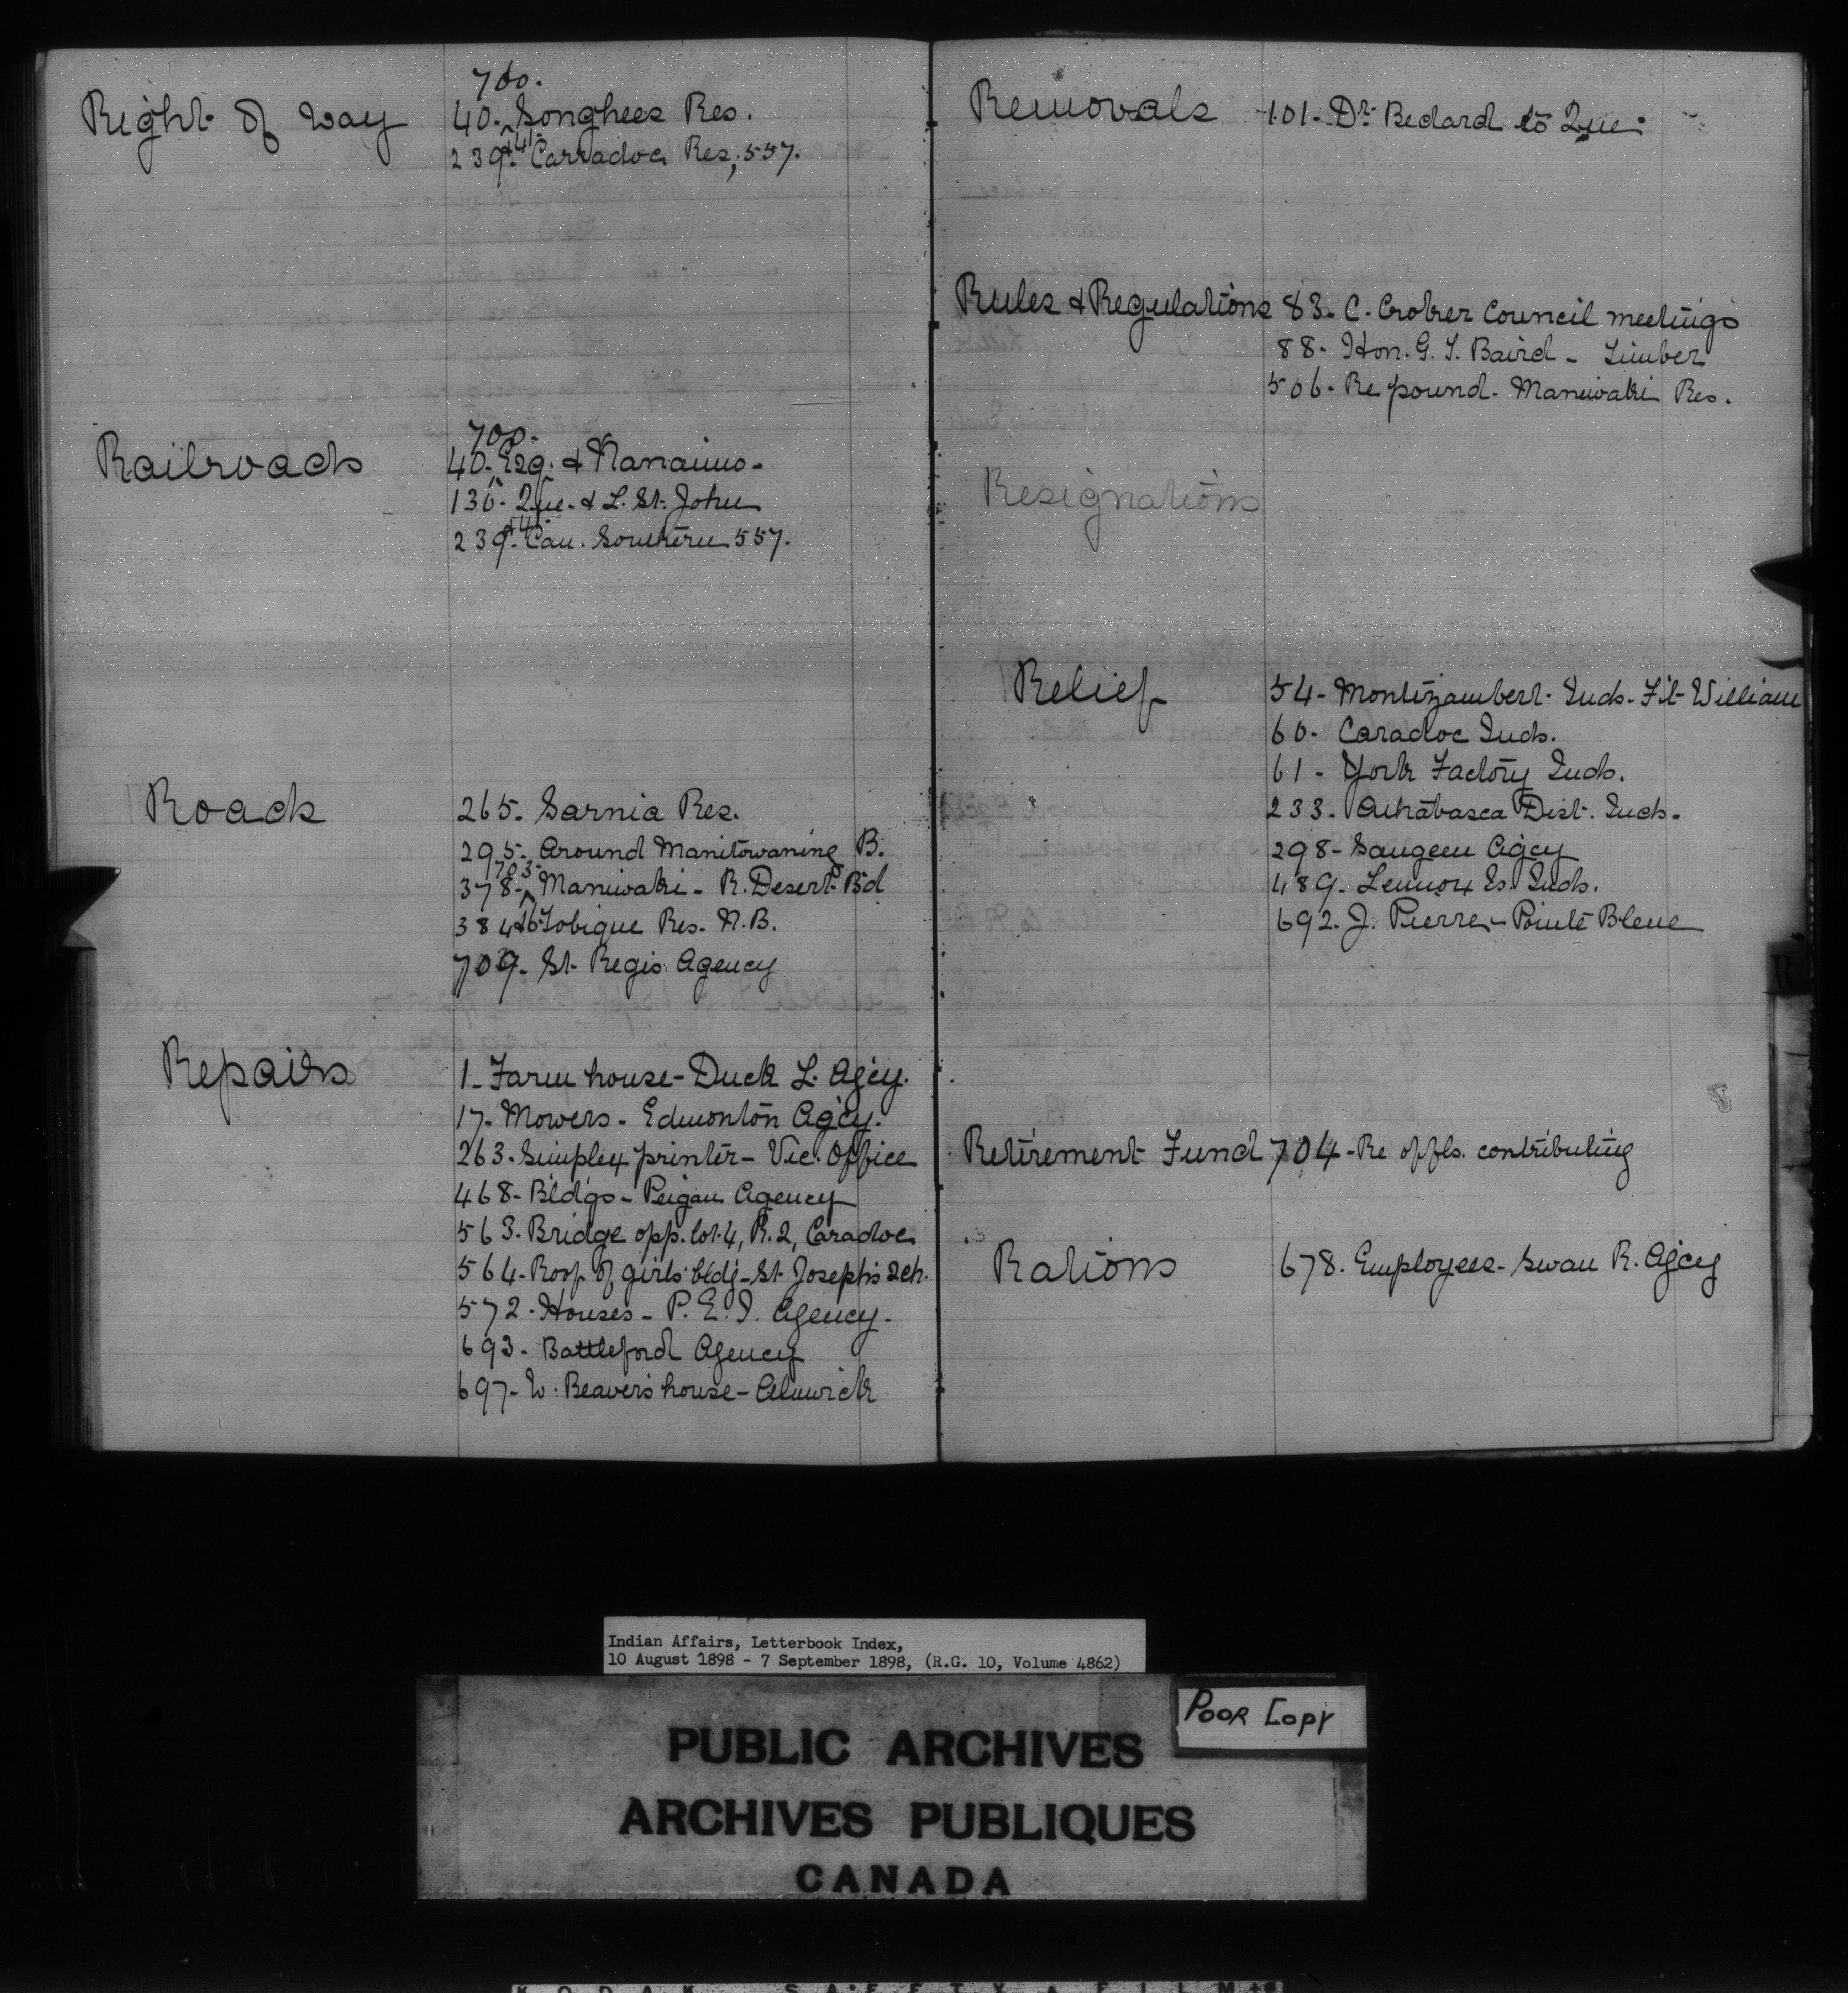 700.
Right of way 40. Songhees Res.
239. & 41. Carradoc Res, 557.
700.
Railroads 40. Esq. & Nanaimo.
136. Que. & L. St. John
239. & 41. Can. Southern 557.
Roads 265. Sarnia Res.
295. Around Manitowaning B.
703
378. Maniwaki - R. Desert Bd
384 & 6. Tobique Res. N.B.
709. St. Regis Agency
Repairs 1 - Farm house - Duck L. Agcy.
17. Mowers - Edmonton Agcy.
263. Simplex printer - Vic. Office
468 - Bldgs - Peigan Agency
563. Bridge opp. lot. 4, R. 2, Caradoc
564 - Roof of girls' bldg - St. Joseph's Sch.
572. Houses - P. E. I. Agency.
693. Battleford Agency
697 - W. Beaver's house - Alnwick
Removals 101. Dr. Bedard to Que.
Rules & Regulations 83. C. Croker Council meetings
88. Hon. G. T. Baird - Timber
506. Re pound. Maniwaki Res.
Resignations
Relief 54 - Montizambert Inds. Ft. William
60. Caradoc Inds.
61 - York Factory Inds.
233. Athabasca Dist. Inds.
298 - Saugeen Agcy
489. Lennox Is. Inds.
692. J. Pierre - Pointe Bleue
Retirement Fund 704 - Re offls. contributing
Rations 678. Employees - Swan R. Agcy
R
Indian Affairs, Letterbook Index,
10 August 1898 - 7 September 1898, (R.G. 10, Volume 4862)
Poor Copy
PUBLIC ARCHIVES
ARCHIVES PUBLIQUES
CANADA
KODAK SAFETY FILM